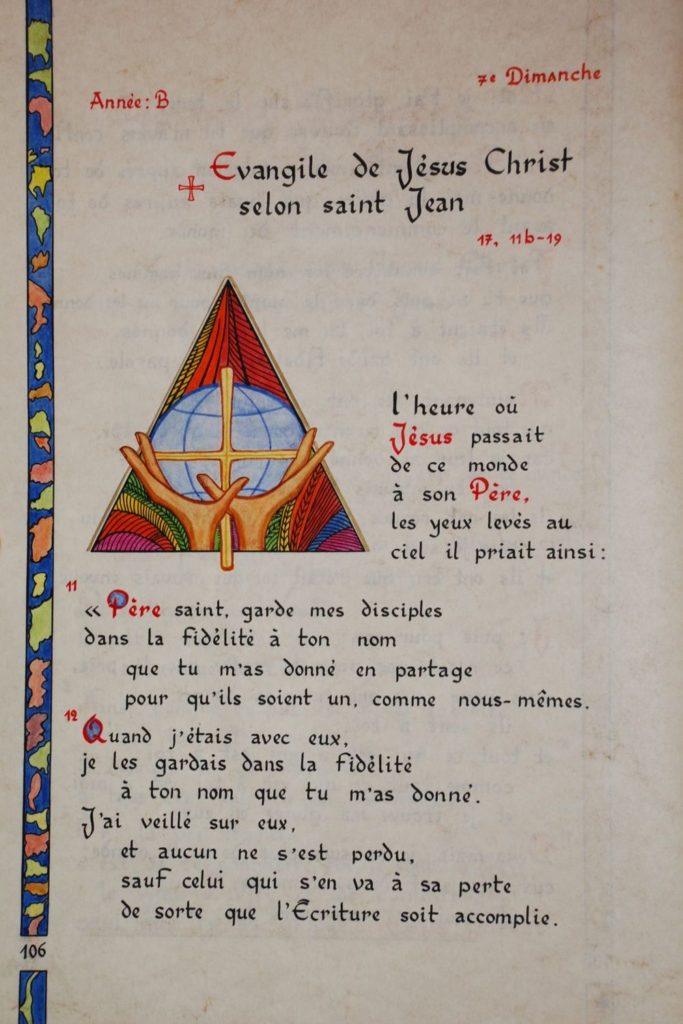 7e Dimanche
Année: B
Evangile de Jésus Christ
selon saint Jean
17, 11b-19
l'heure où
Jésus passait
de ce monde
à son Père,
les yeux levés au
ciel il priait ainsi:
11
« Père saint, garde mes disciples
dans la fidélité à ton nom
que tu m'as donné en partage
pour qu'ils soient un, comme nous-mêmes.
12
Quand j'étais avec eux,
je les gardais dans la fidélité
à ton nom que tu m'as donné.
J'ai veillé sur eux,
et aucun ne s'est perdu,
sauf celui qui s'en va à sa perte
de sorte que l'Écriture soit accomplie.
106